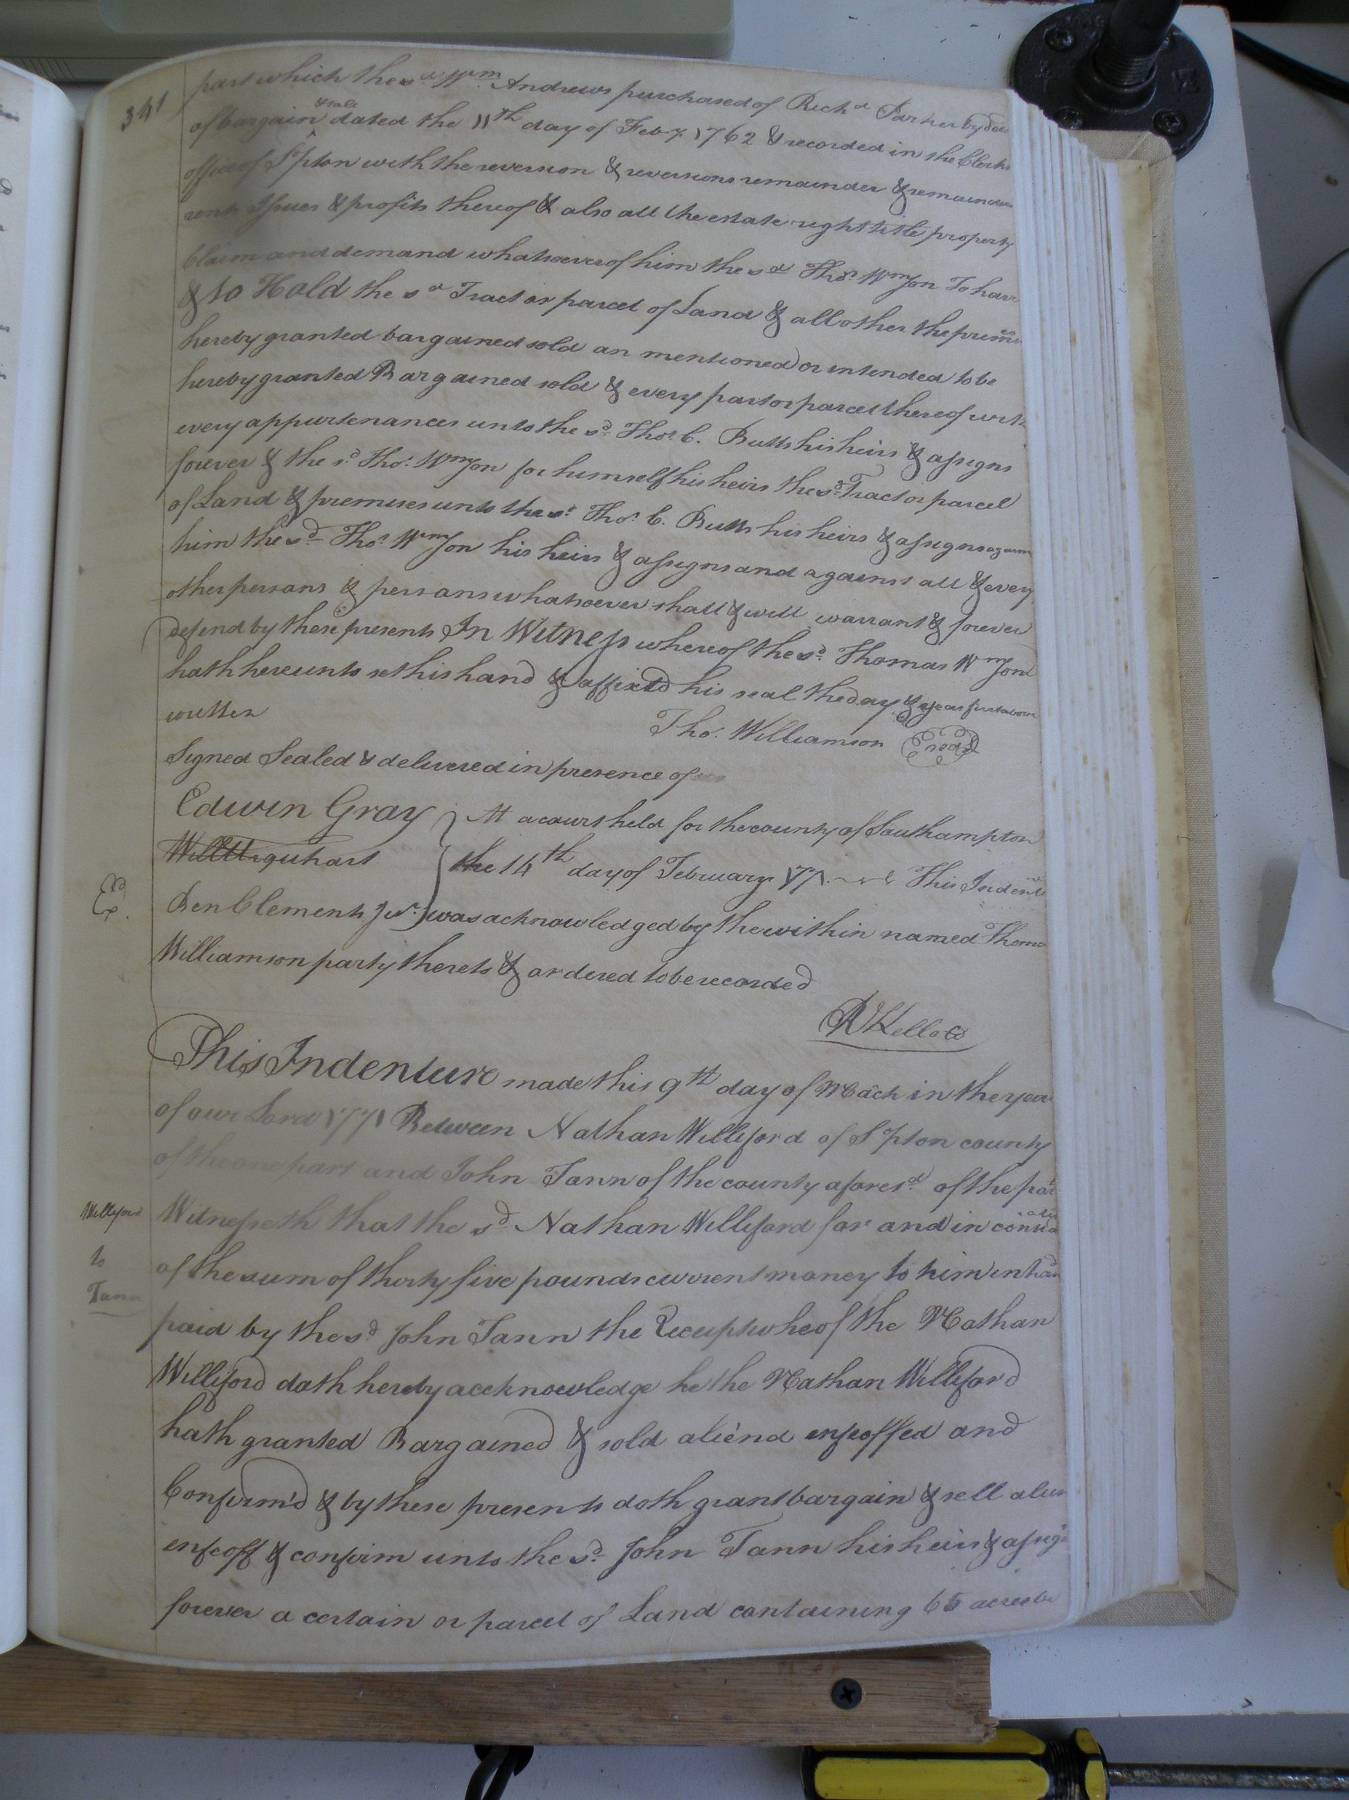 341
part which the sd. Wm. Andrews purchased of Richd. Parker by dee
of bargain & sale dated the 11th day of Feby. 1762 & recorded in the Clerks
office of S'pton with the reversion & reversions remainder & remainders
rents Issues & profits thereof & also all the estate right title property
Claim and demand whatsoever of him the sd. Thos. Wmson To have
& to Hold the sd. Tract or parcel of Land & all other the premes
hereby granted bargained sold an mentioned or intended to be
hereby granted Bargained sold & every part or parcel thereof with
every appurtenances unto the sd. Thos. C. Butts his heirs & assigns
forever & the sd. Thos. Wmson for himself his heirs the sd. Tract or parcel
of Land & premises unto the sd. Thos. C. Butts his heirs & assigns again
him the sd. Thos. Wmson his heirs & assigns and against all & every
other persons & persons whatsoever shall & will warrant & forever
defend by these presents In Witness whereof the sd. Thomas Wmson
hath hereunto set his hand & affixed his seal the day & year first above
written
Tho. Williamson seal
Signed Sealed & delivered in presence of
Edwin Gray
Will Urquhart
Ben Clements Jur.
At a court held for the county of Southampton
the 14th day of February 1771 This Indent
was acknowledged by the within named Thoma
Williamson party thereto & ordered to be recorded
Ex.
R Kello CC
This Indenture made this 9th day of Mach in the year
of our Lord 1771 Between Nathan Williford of S'pton county
of the one part and John Tann of the county aforesd. of the part
Williford
to
Tann
Witnesseth that the sd Nathan Williford for and in consideration
of the sum of thirty five pounds current money to him in han
paid by the sd John Tann the Receipt whe of the Nathan
Williford doth hereby accknowledge he the Nathan Williford
hath granted Bargained & sold alie'nd enfeoffed and
Confirm'd & by these presents doth grant bargain & sell alien
enfeoff & confirm unto the sd. John Tann his heirs & assigs
forever a certain or parcel of Land containing 65 acres be